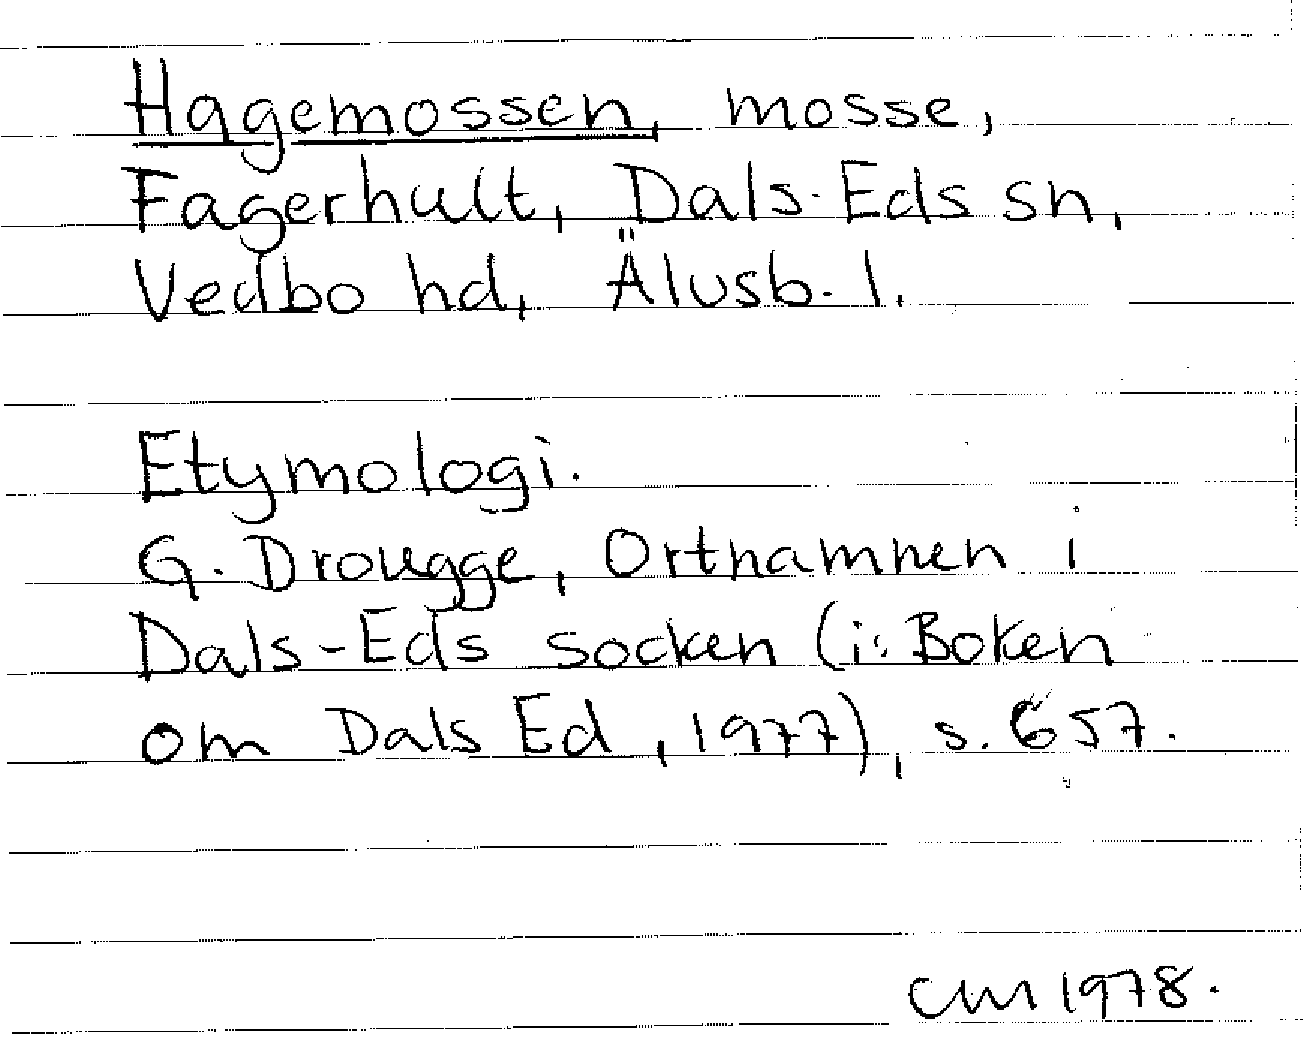 Hagemossen, mosse,
Fagerhult, Dals-Eds sn,
Vedbo hd, Älvsb. l.
Etymologi.
G. Drougge, Ortnamnen i
Dals-Eds socken (i: Boken
om Dals Ed, 1977), s. 657.
CM 1978.